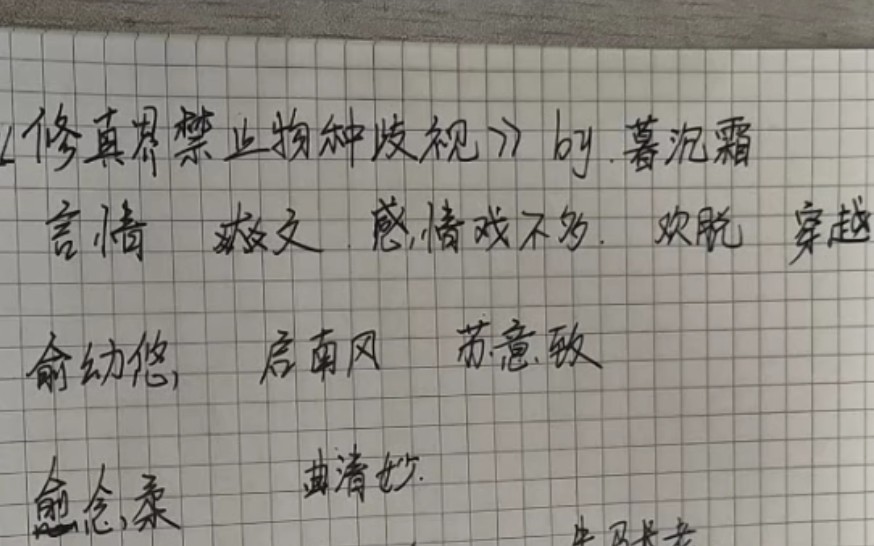 《修真界禁止物种歧视》by.暮沉霜
言情 爽文.感情戏不多. 欢脱 穿越
俞幼悠 启南风 苏意致
俞念柔 曲清妙.
长老